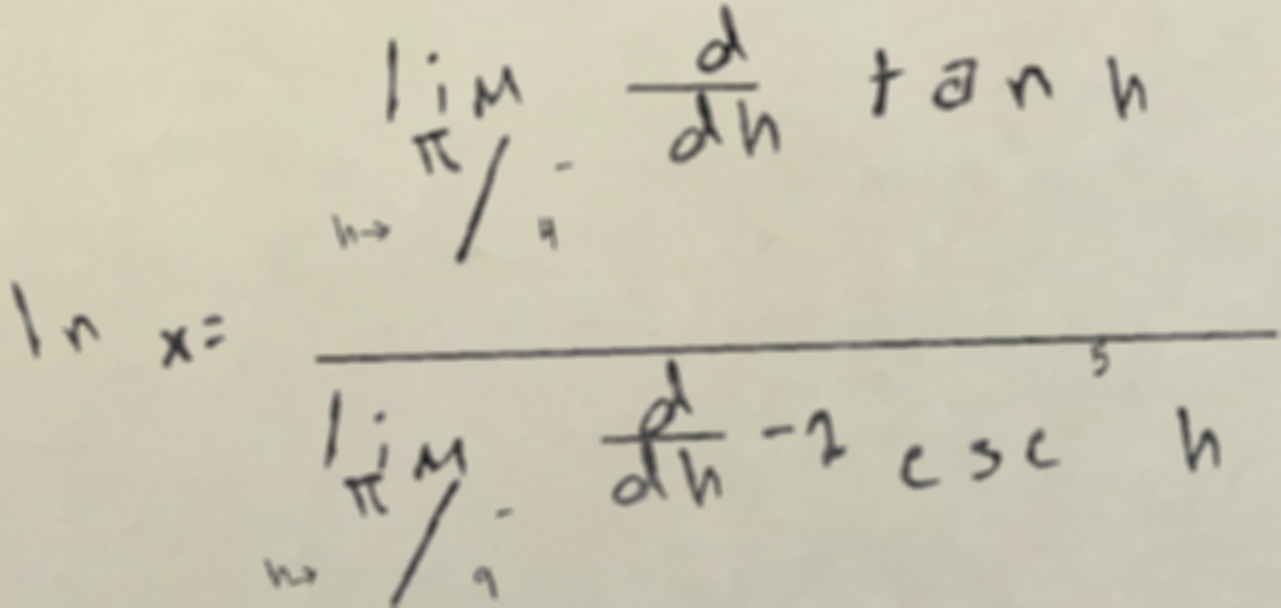 ln x = \frac{\lim_{h \to \pi/4^-} \frac{d}{dh} \tan h}{\lim_{h \to \pi/9^-} \frac{d}{dh} -2 \csc^5 h}